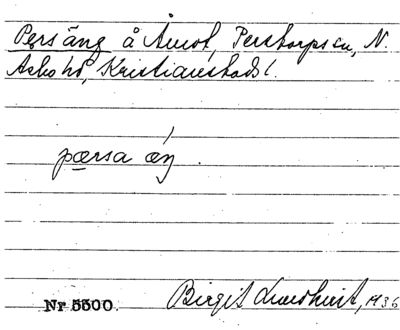 Persäng å Åmot, Perstorps sn, N.
Åsbo hd, Kristianstads l.
pærsa æŋ.
Nr 5500. Birgit Lundkvist, 1936